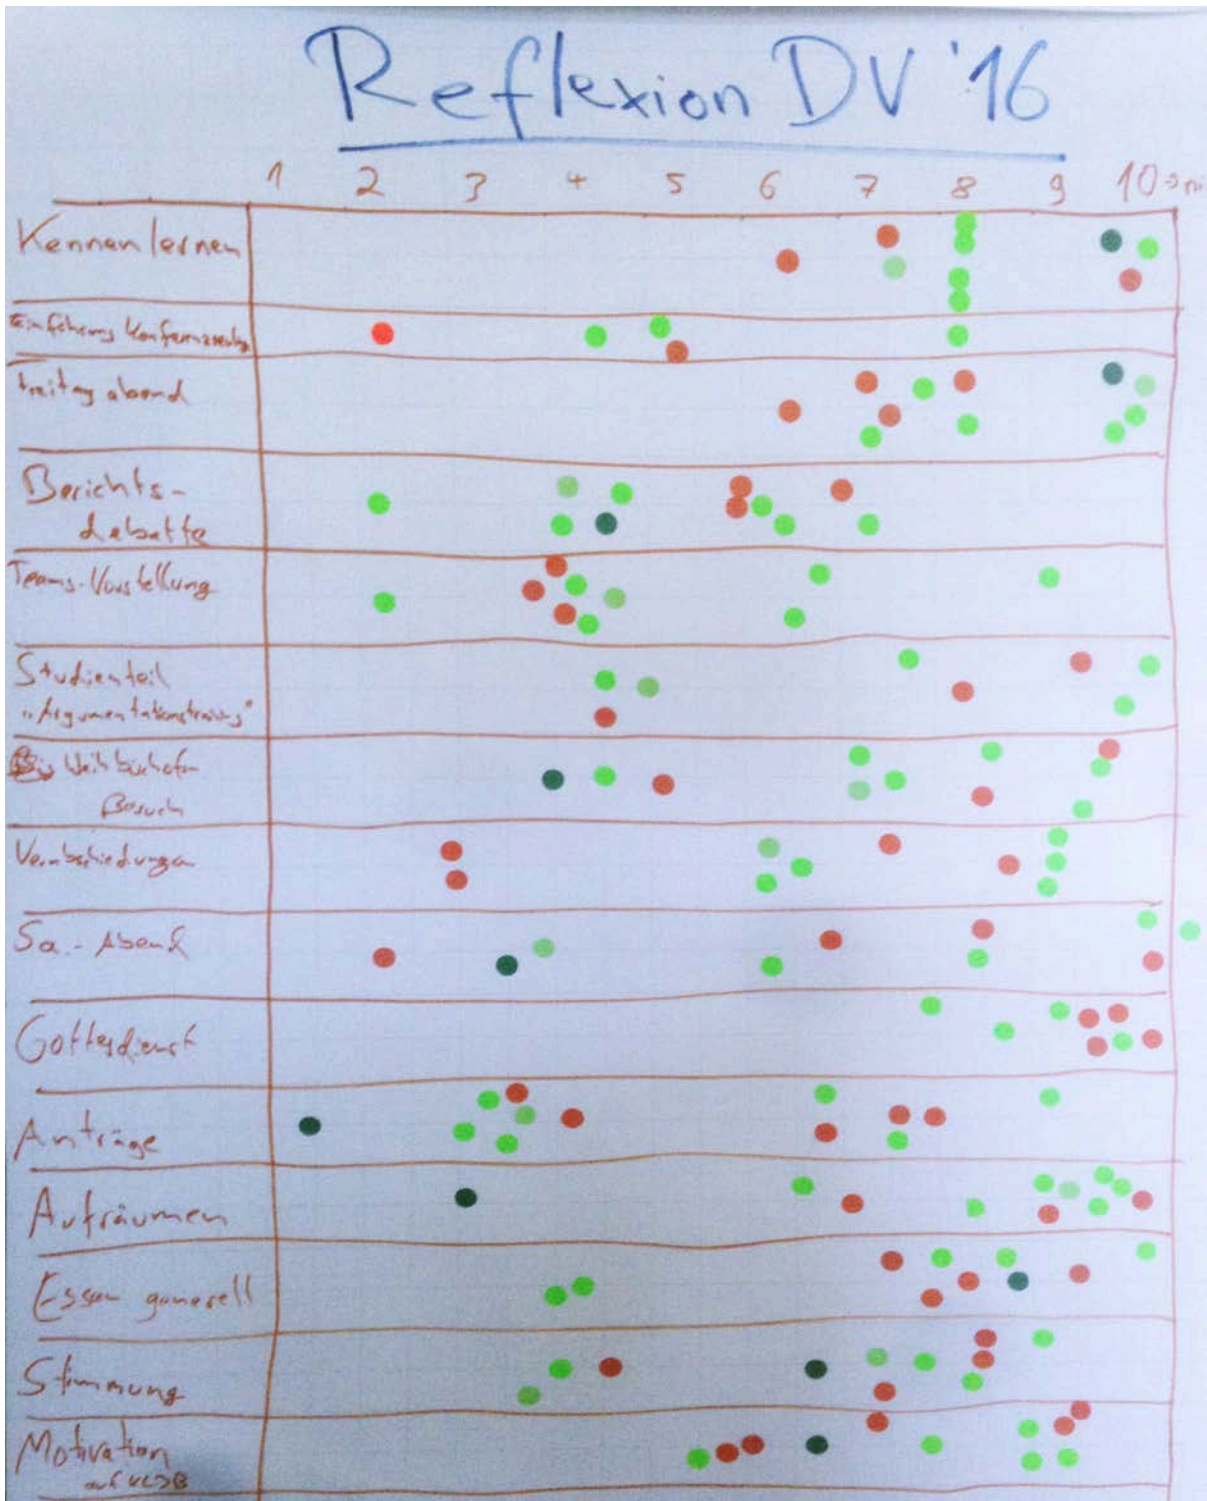 Reflexion DV '16
1 2 3 4 5 6 7 8 9 10
Kennenlernen
Einführung
Freitag abend
Berichts-
debatte
Teams-Vorstellung
Studienteil
"Argumentationstraining"
Weihbischof
Besuch
Verabschiedungen
Sa.-Abend
Gottesdienst
Anträge
Aufräumen
Essen generell
Stimmung
Motivation
auf